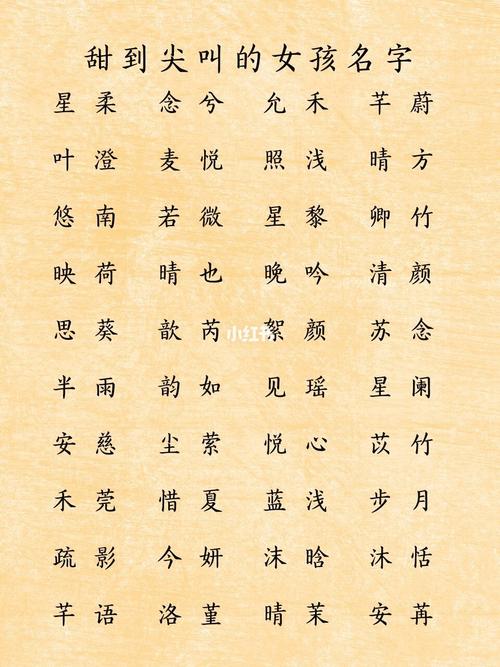 甜到尖叫的女孩名字
星柔 念兮 允禾 芊蔚
叶澄 麦悦 照浅 晴方
悠南 若微 星黎 卿竹
映荷 晴也 晚吟 清颜
思葵 歆芮 絮颜 苏念
小红书
半雨 韵如 见瑶 星阑
安慈 尘萦 悦心 苡竹
禾莞 惜夏 蓝浅 步月
疏影 今妍 沫晗 沐恬
芊语 洛堇 晴茉 安苒